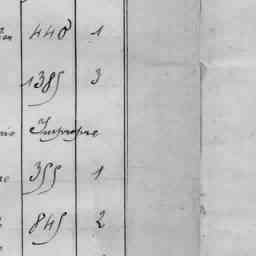 448 1
1385 3
Impropre
355 1
845 2